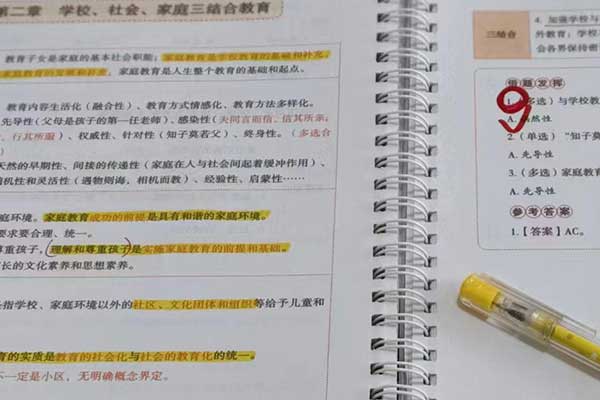 第二章 学校、社会、家庭三结合教育
教育子女是家庭的基本社会职能；家庭教育是学校教育的基础和补充，
家庭教育是人生整个教育的基础和起点。
教育内容生活化（融合性）、教育方式情感化、教育方法多样化。
先导性（父母是孩子的第一任老师）、感染性（夫同言而信，信其所亲；
行其所服）、权威性、针对性（知子莫若父）、终身性。（多选合
天然的早期性、间接的传递性（家庭在人与社会间起着缓冲作用）、
机性和灵活性（遇物则诲，相机而教）、经验性、启蒙性……
庭环境。家庭教育成功的前提是具有和谐的家庭环境。
要求要合理、统一。
尊重孩子，（理解和尊重孩子）是实施家庭教育的前提和基础。
长的文化素养和思想素养。
指学校、家庭环境以外的社区、文化团体和组织等给予儿童和
育的实质是教育的社会化与社会的教育化的统一。
不一定是小区，无明确概念界定。
三结合
4. 加强学校与
外教育；学校
会各界保持密
借题发挥
1.（多选）与学校教
A. 偶然性
9
2.（单选）“知子莫
A. 先导性
3.（多选）家庭教育
A. 先导性
参考答案
1.【答案】AC。